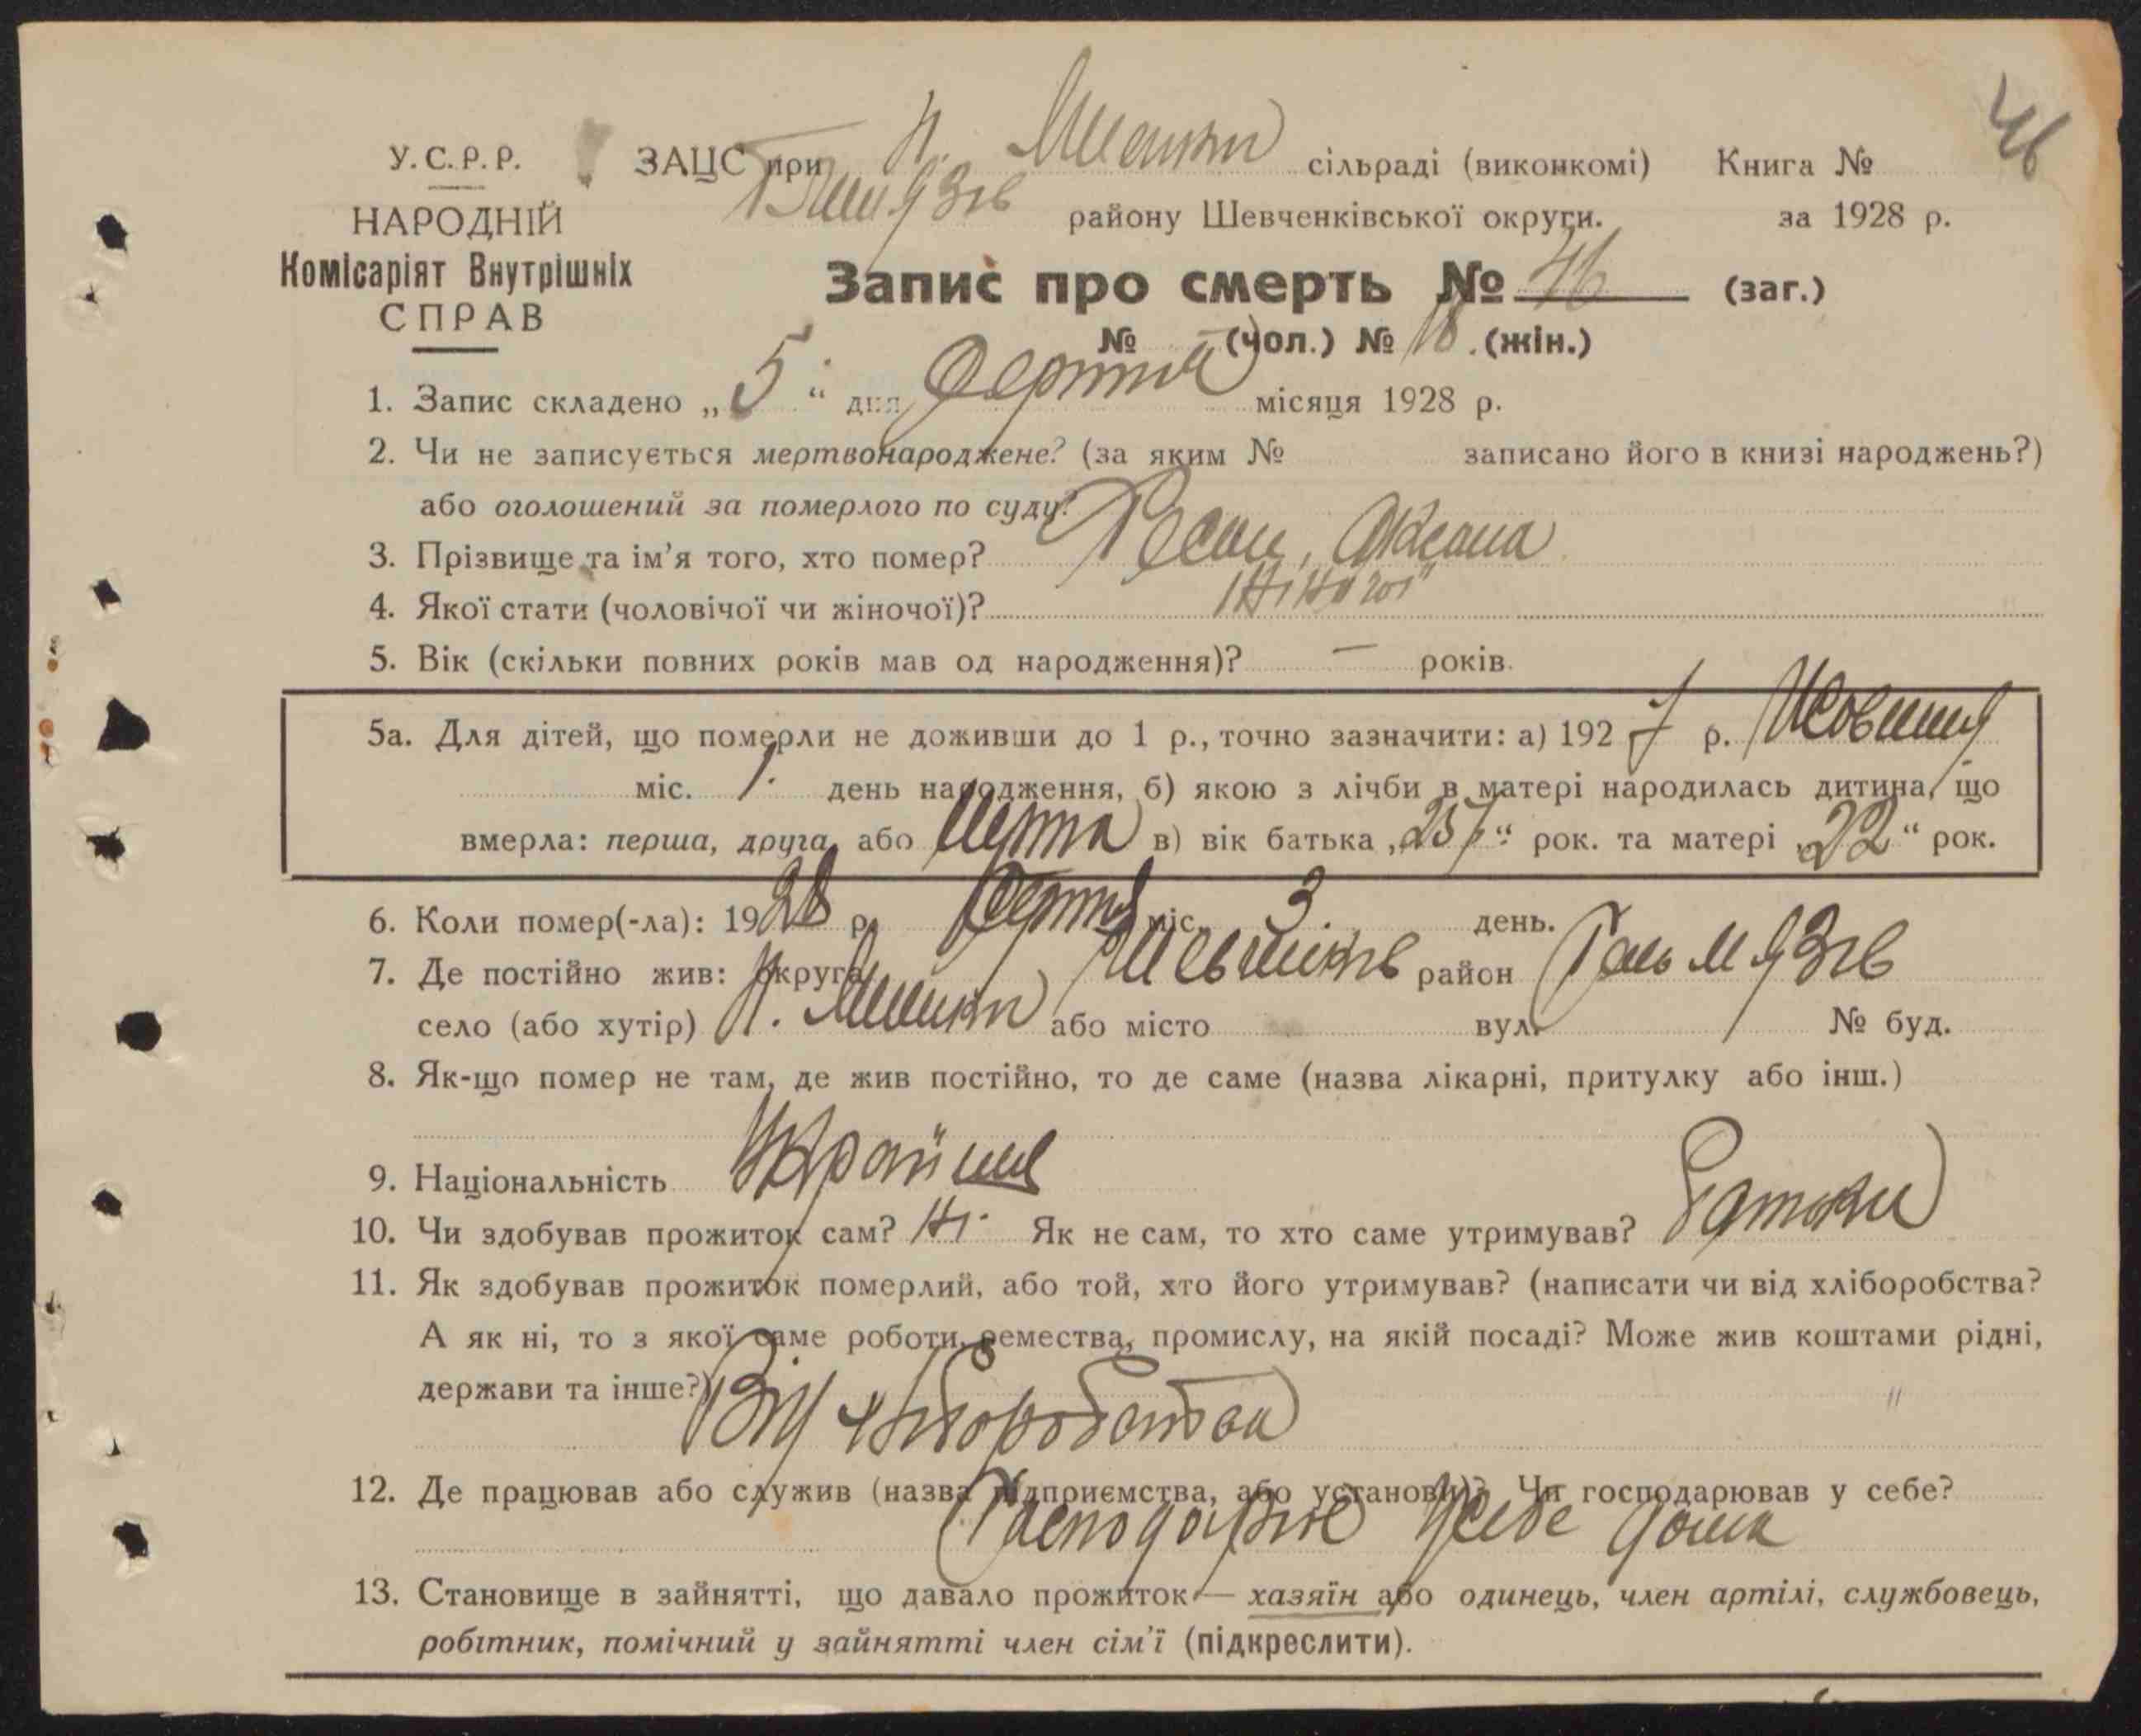 46
У.С.Р.Р. ЗАЦС при Н. Мишки сільраді (виконкомі) Книга №
НАРОДНІЙ Гельмязів району Шевченківської округи. за 1928 р.
Комісаріят Внутрішніх
СПРАВ
Запис про смерть № 46 (заг.)
№ – (чол.) № 18 (жін.)
1. Запис складено „5“ дня Серпня місяця 1928 р.
2. Чи не записується мертвонароджене? (за яким № записано його в книзі народжень?)
або оголошений за померлого по суду?
3. Прізвище та ім’я того, хто помер? Оксана
4. Якої стати (чоловічої чи жіночої)? Жіночої
5. Вік (скільки повних років мав од народження)? – років.
5а. Для дітей, що померли не доживши до 1 р., точно зазначити: а) 1927 р. Жовтня
міс. 1. день народження, б) якою з лічби в матері народилась дитина, що
вмерла: перша, друга, або в) вік батька „25“ рок. та матері „22“ рок.
6. Коли помер(-ла): 1928 р. Серпня міс. 3. день.
7. Де постійно жив: округа Шевченків район Гельмязів
село (або хутір) Н. Мишки або місто вул. № буд.
8. Як-що помер не там, де жив постійно, то де саме (назва лікарні, притулку або інш.)
9. Національність
10. Чи здобував прожиток сам? Ні. Як не сам, то хто саме утримував? Батьки
11. Як здобував прожиток померлий, або той, хто його утримував? (написати чи від хліборобства?
А як ні, то з якої саме роботи, ремества, промислу, на якій посаді? Може жив коштами рідні,
держави та інше?) Від хліборобства
12. Де працював або служив (назва підприємства, або установи)? Чи господарював у себе?
у себе дома
13. Становище в зайнятті, що давало прожиток — хазяїн або одинець, член артілі, службовець,
робітник, помічний у зайнятті член сім’ї (підкреслити).